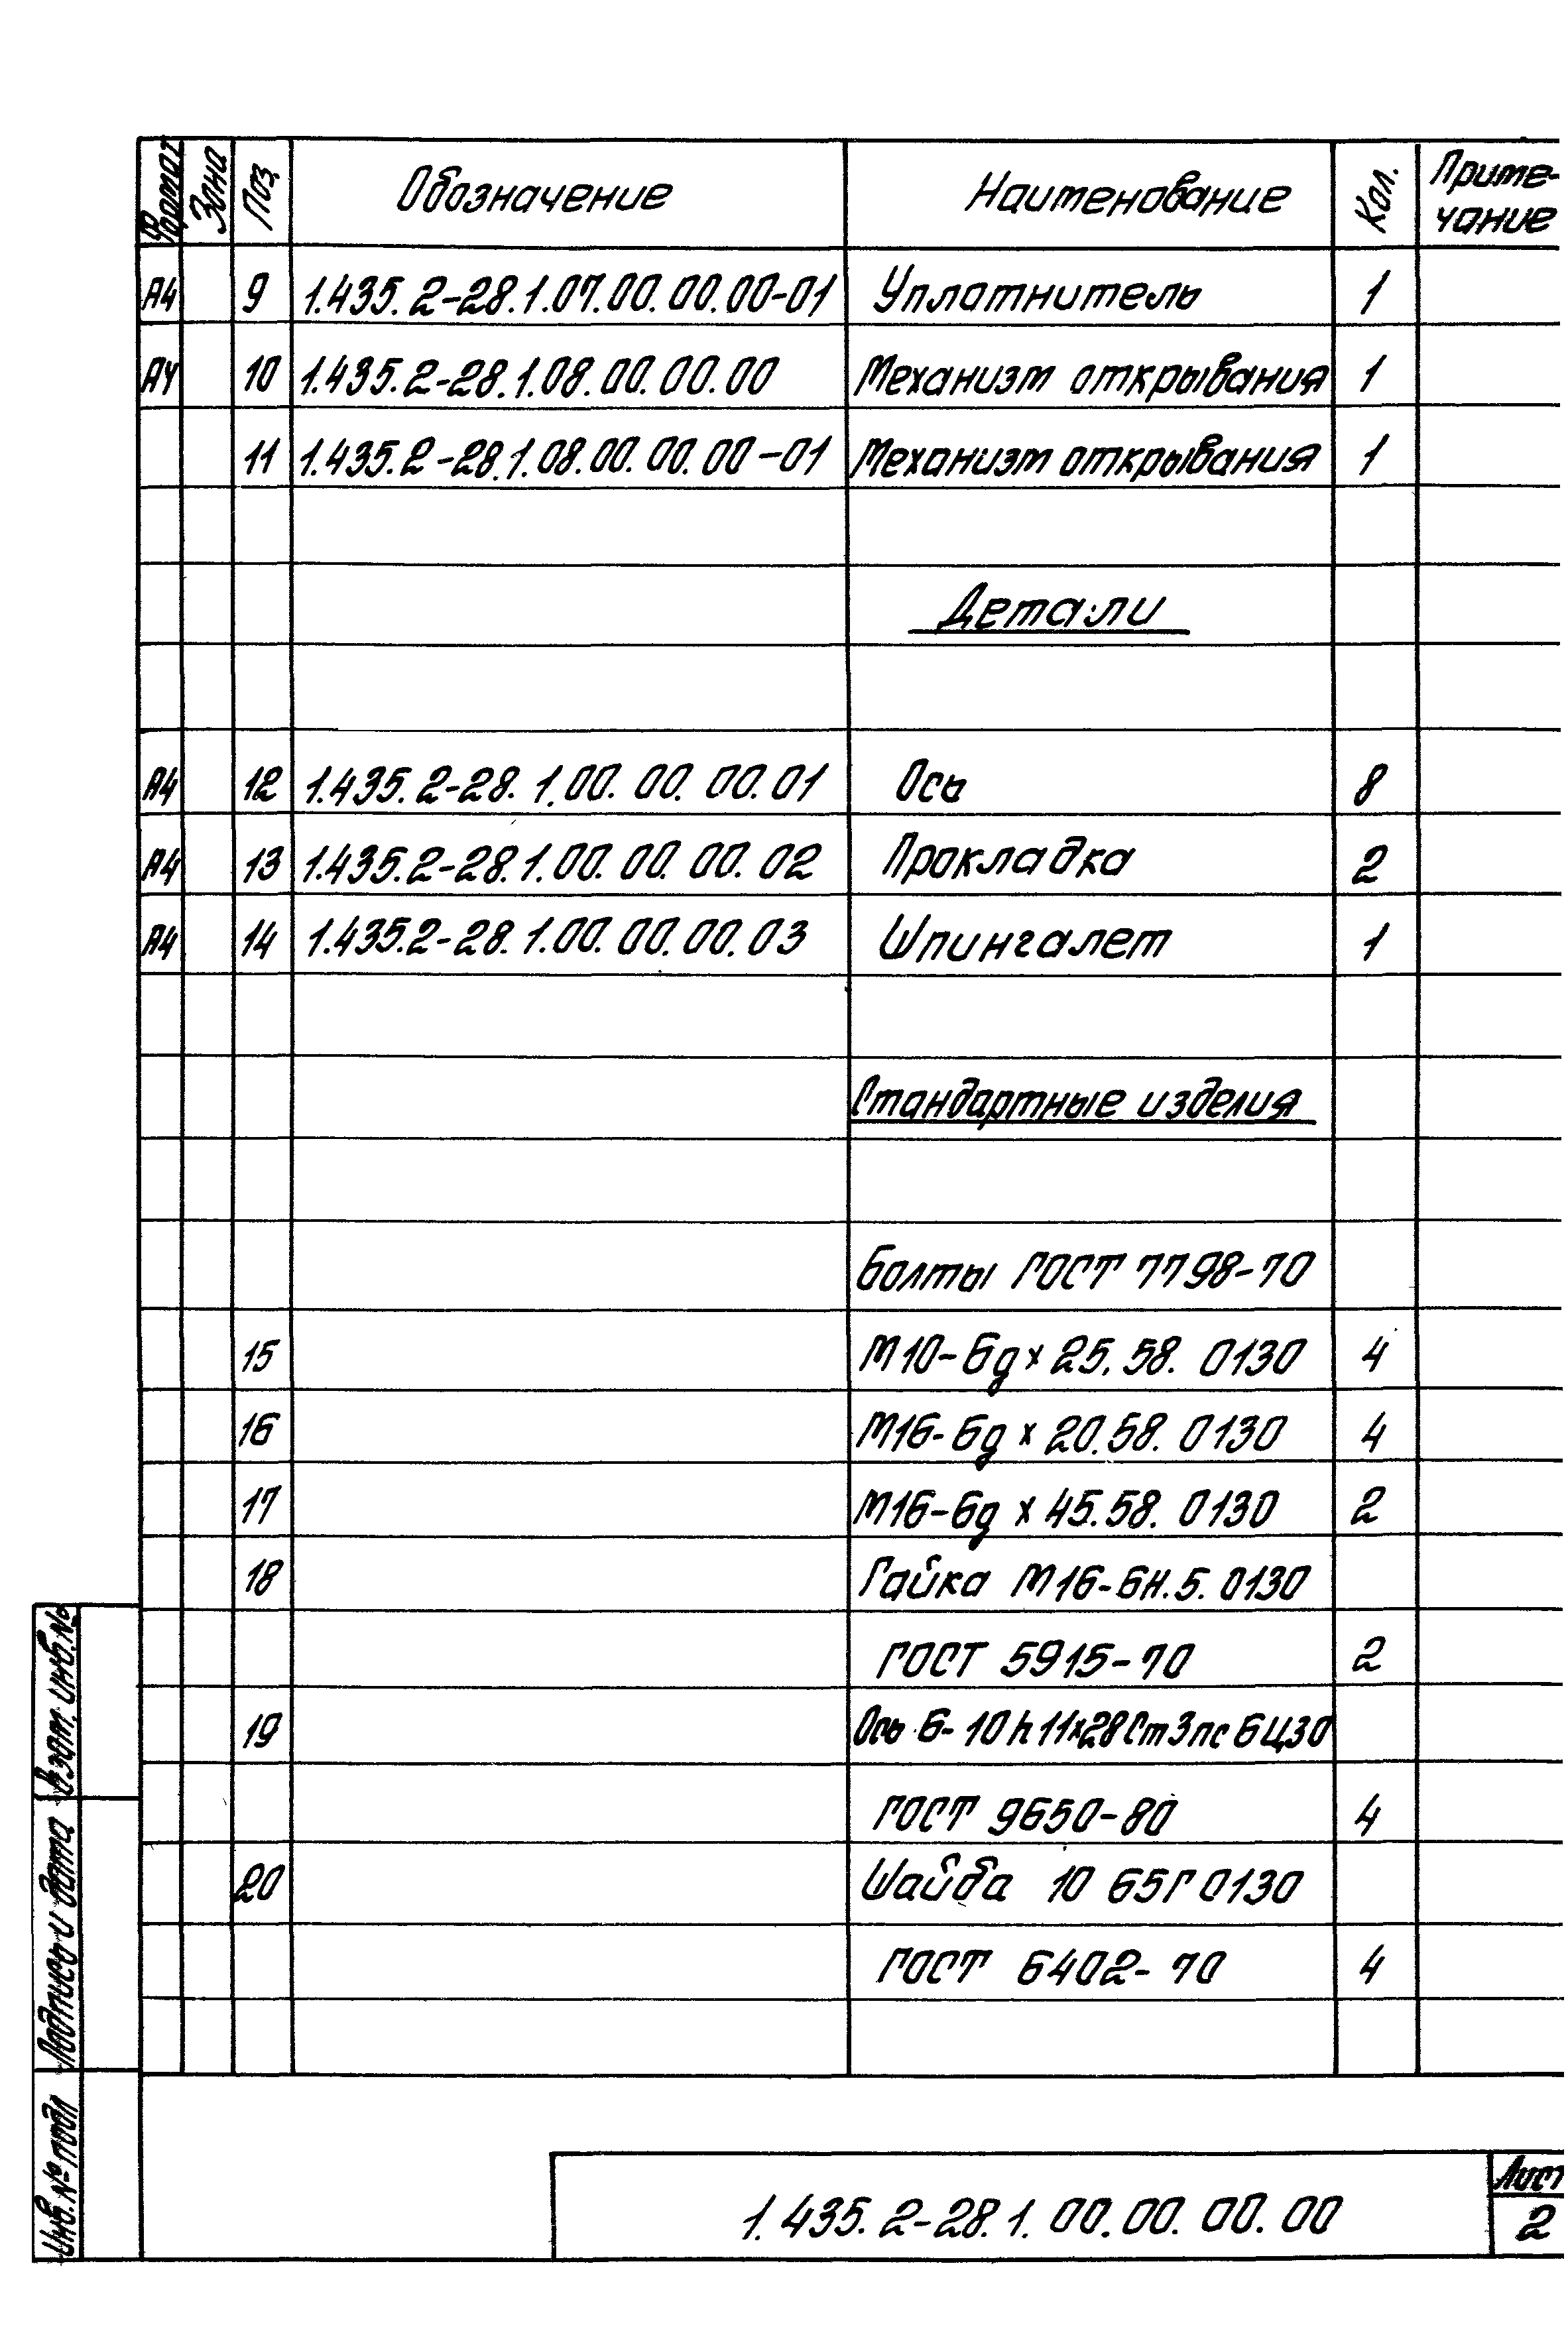 Формат Зона Поз. Обозначение Наименование Кол. Приме-
чание
А4 9 1.435.2-28.1.07.00.00.00-01 Уплатнитель 1
А4 10 1.435.2-28.1.08.00.00.00 Механизм открывания 1
11 1.435.2-28.1.08.00.00.00-01 Механизм открывания 1
Детали
А4 12 1.435.2-28.1.00.00.00.01 Ось 8
А4 13 1.435.2-28.1.00.00.00.02 Прокладка 2
А4 14 1.435.2-28.1.00.00.00.03 Шпингалет 1
Стандартные изделия
Болты ГОСТ 7798-70
15 М10-6g×25.58.0130 4
16 М16-6g×20.58.0130 4
17 М16-6g×45.58.0130 2
18 Гайка М16-6Н.5.0130
ГОСТ 5915-70 2
19 Ось 6-10h11×28Ст3пс6Ц30
ГОСТ 9650-80 4
20 Шайба 10 65Г 0130
ГОСТ 6402-70 4
Взам. инв. №
Подпись и дата
Инв. № подл
1.435.2-28.1.00.00.00.00
Лист
2